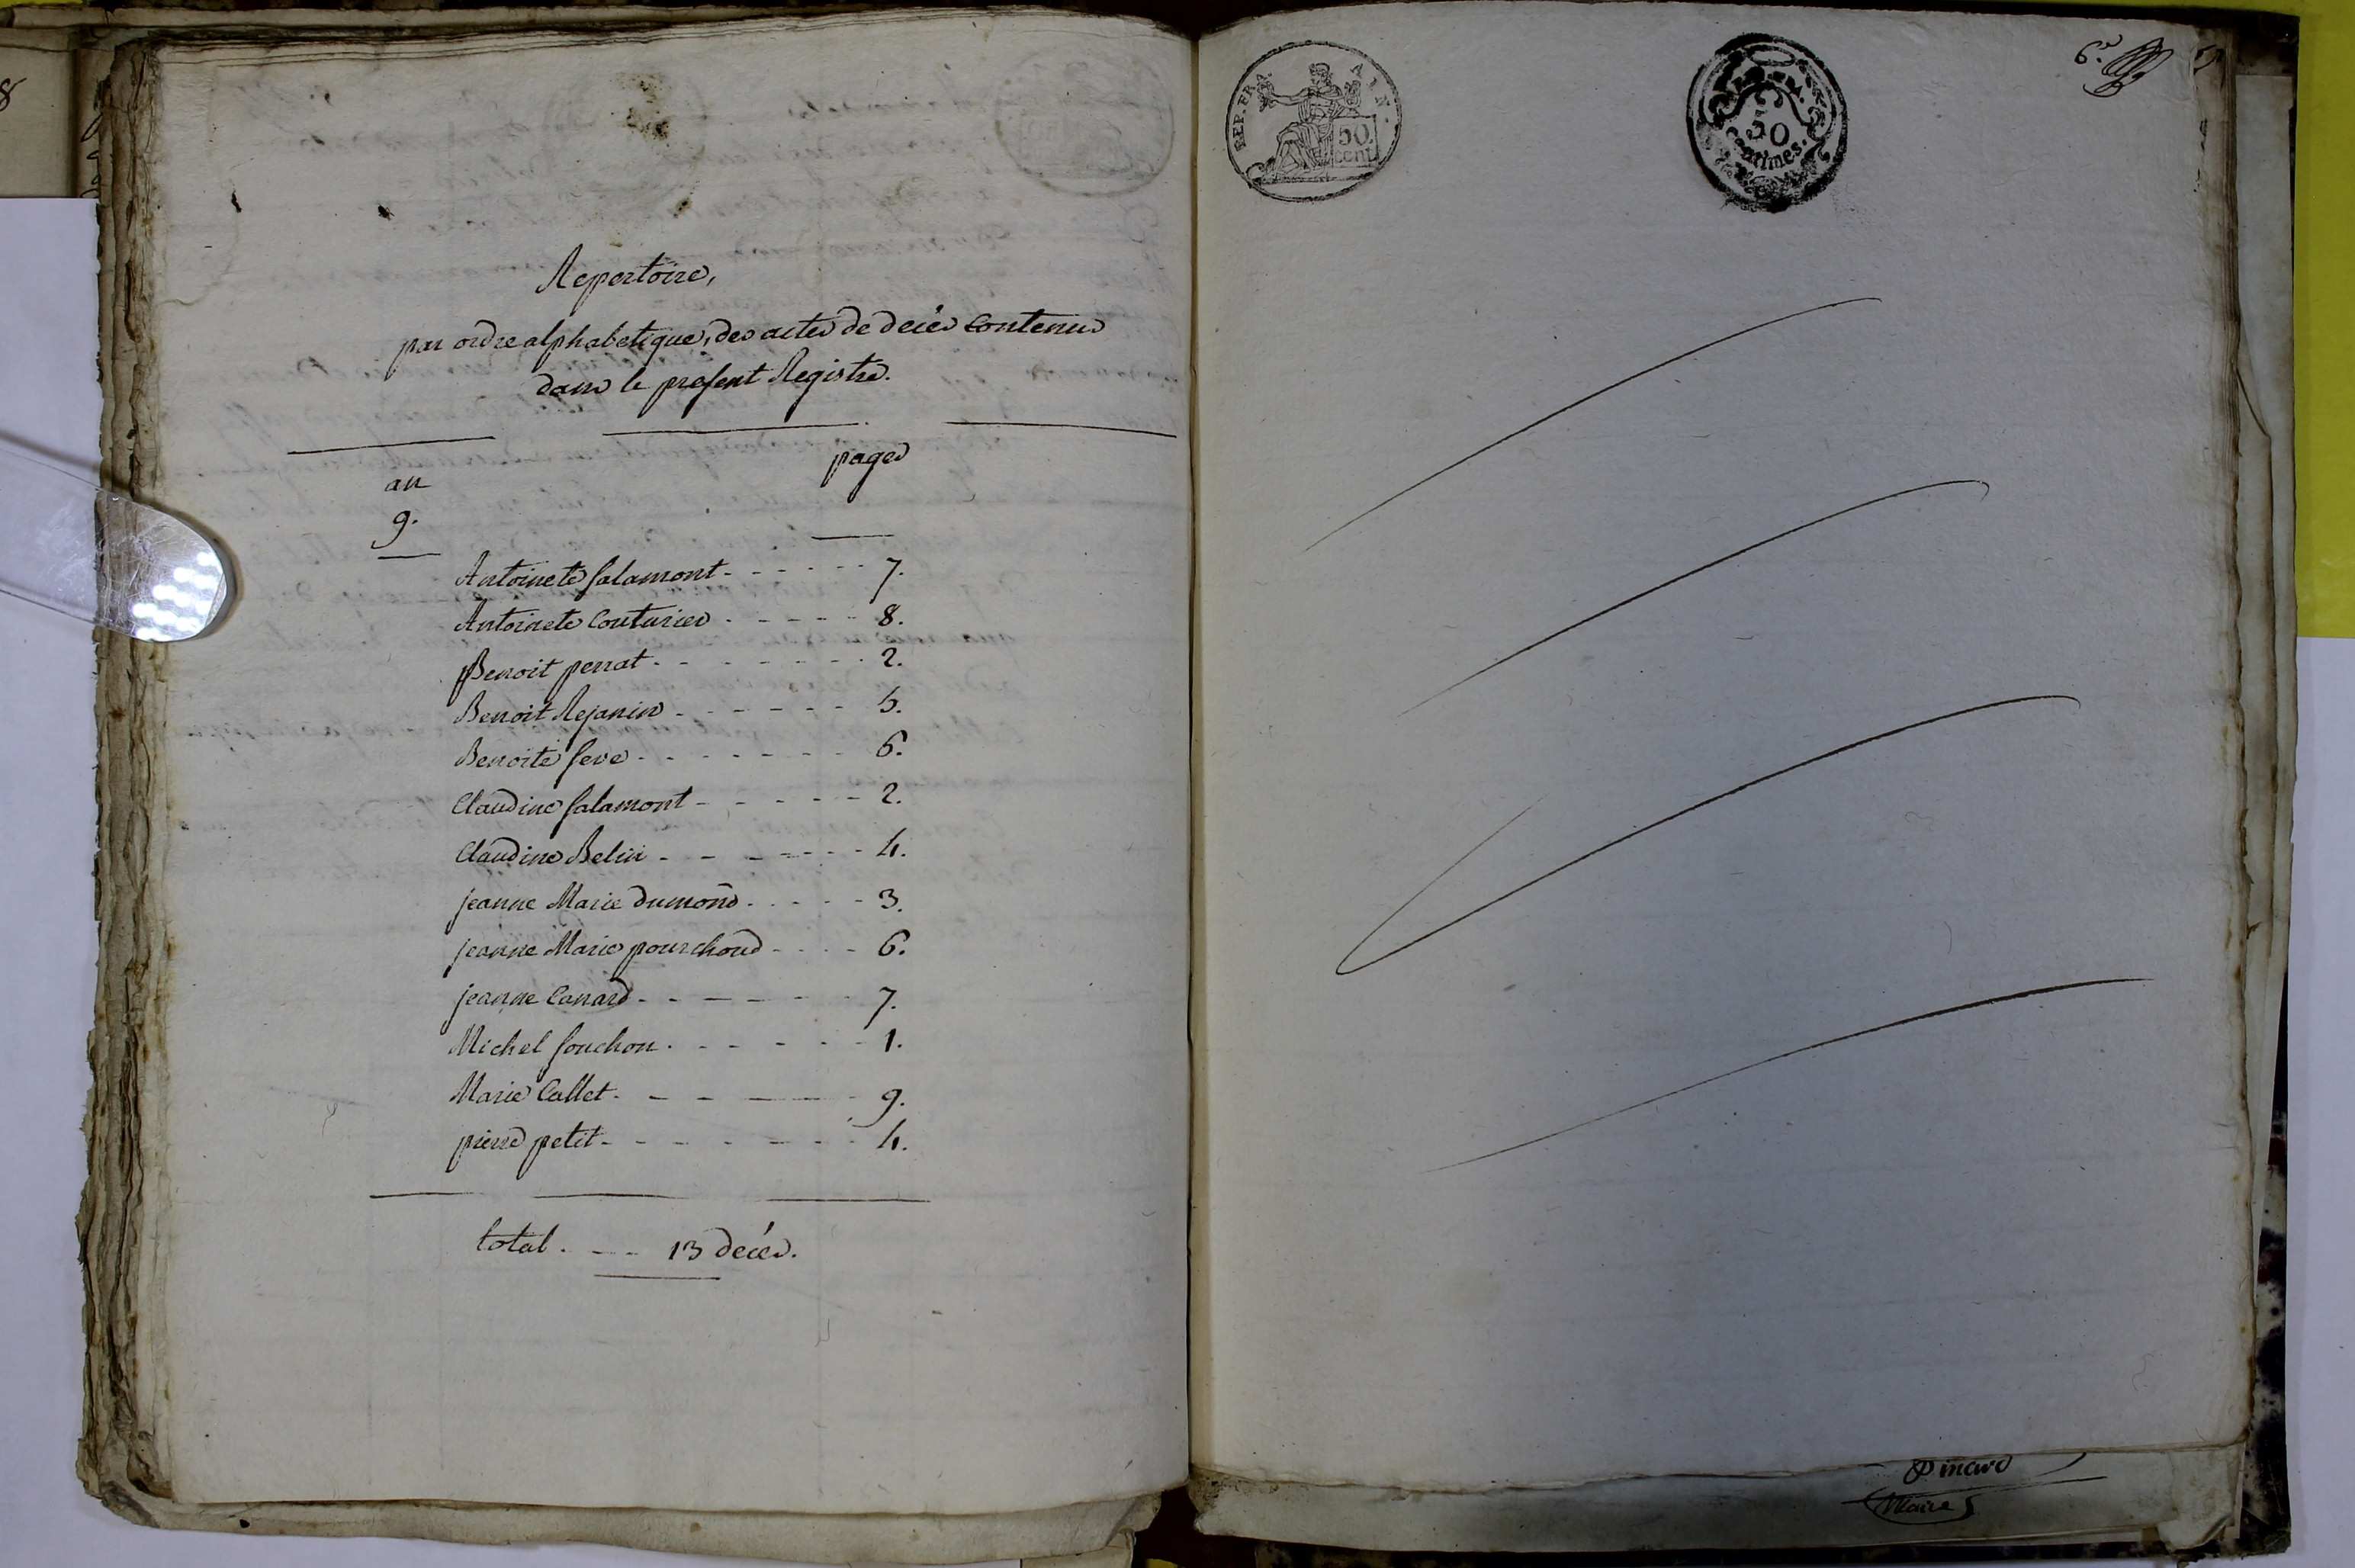 Repertoire,
par ordre alphabetique, des actes de decés contenus
dans le present Registre.
pages
an
9.
Antoinete Salamont - - - - - - 7.
Antoinete Couturier - - - - - 8.
Benoit perrat - - - - - - - 2.
Benoit Rejanin - - - - - - 5.
Benoite Seve - - - - - - - 6.
Claudine Salamont - - - - - 2.
Claudine Belin - - - - - - - 4.
jeanne Marie dumond - - - - - 3.
jeanne Marie pourchoud - - - - 6.
jeanne Canard - - - - - - 7.
Michel Souchon - - - - - - 1.
Marie Collet - - - - - - 9.
pierre petit - - - - - - - 4.
total. - - - 13 decés.
REP. FRA.
50
cent
50
centimes.
6.e
Maire
8